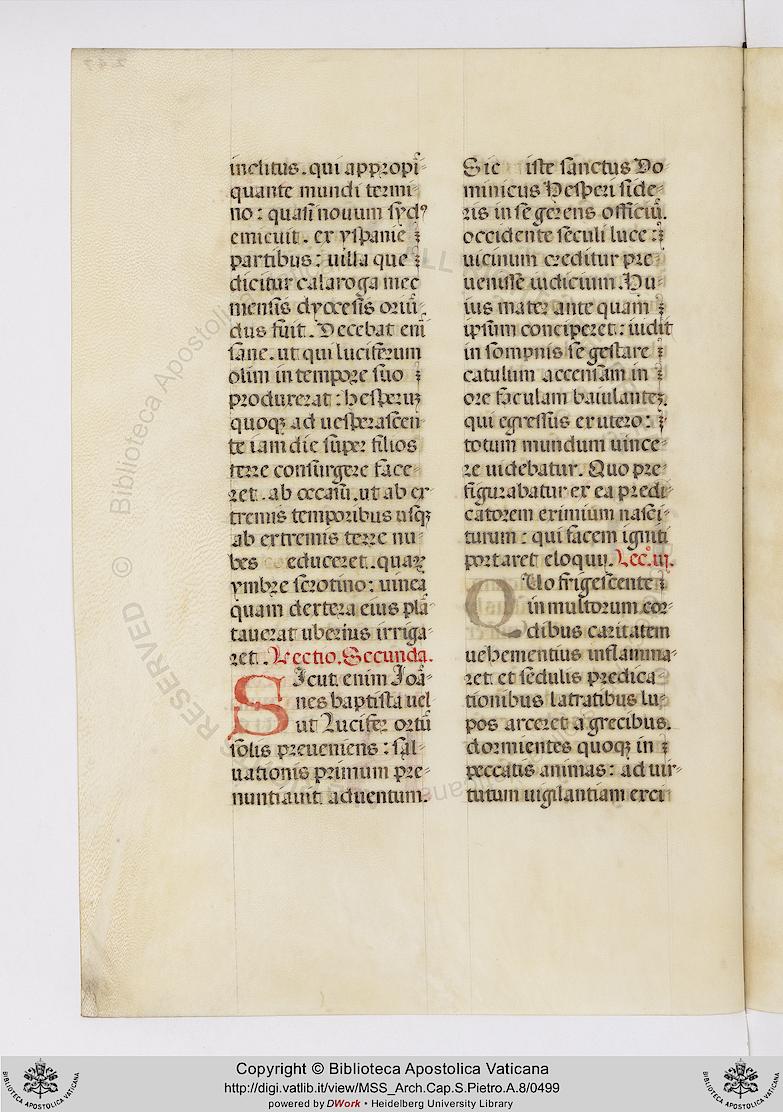 inclitus. qui appropī⸗
quante mundi termi⸗
no: quasi nouum syd᾿
emicuit. ex yspanie
partibus: uilla que
dicitur calaroga mec
mensis dyocesis oriū⸗
dus fuit. Decebat enī
sane. ut qui luciferum
olim in tempore suo
produxerat: hesperuꝫ
quoqꝫ ad uesperascen⸗
te iam die super filios
terre consurgere face⸗
ret. ab occasu. ut ab ex⸗
tremis temporibus usqꝫ
ab extremis terre nu⸗
bes educeret. quaꝝ
ymbre serotino: uineā
quam dextera eius plā⸗
tauerat uberius irriga⸗
ret. Lectio. Secunda.
Sicut enim Joā⸗
nes baptista uel
ut Lucifer ortū
solis preueniens: sal⸗
uationis primum pre⸗
nuntiauit aduentum.
Sic iste sanctus Do⸗
minicus Hesperi side⸗
ris in se gerens officiū.
occidente seculi luce:
uicinum creditur pre⸗
uenisse iudicium. Hu⸗
ius mater ante quam
ipsum conciperet: uidit
in sompnis se gestare
catulum accensam in
ore faculam baiulanteꝫ.
qui egressus ex utero:
totum mundum uince⸗
re uidebatur. Quo pre⸗
figurabatur ex ea predi⸗
catorem eximium nasci⸗
turum: qui facem igniti
portaret eloquii. Lecͦ. iij.
Quo frigescente
in multorum cor⸗
dibus caritatem
uehementius inflamma⸗
ret et sedulis predica⸗
tionibus latratibus lu⸗
pos arceret a grecibus.
dormientes quoqꝫ in
peccatis animas: ad uir⸗
tutum uigilantiam exci
Copyright © Biblioteca Apostolica Vaticana
http://digi.vatlib.it/view/MSS_Arch.Cap.S.Pietro.A.8/0499
powered by DWork • Heidelberg University Library
BIBLIOTECA APOSTOLICA VATICANA
BIBLIOTECA APOSTOLICA VATICANA